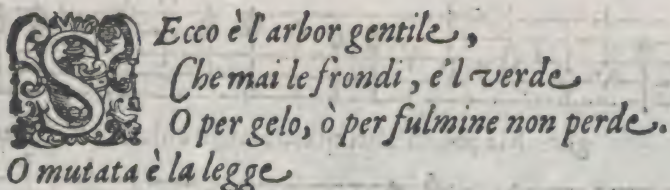 SEcco è l'arbor gentile,
Che mai le frondi, e'l verde
O per gelo, ò per fulmine non perde.
O mutata è la legge